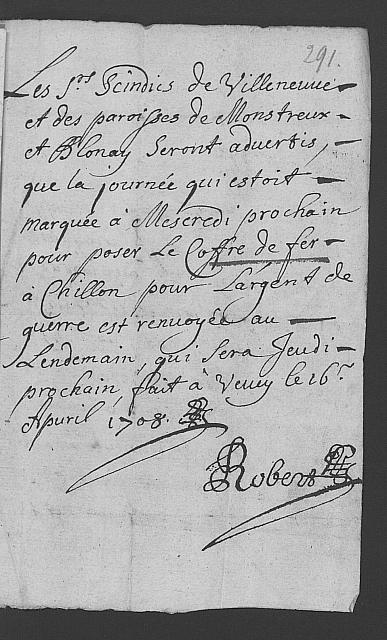 291.
Les s.rs Scindics de Villeneuve
et des paroisses de Monstreux
et Blonay seront advertis,
que la journée qui estoit
marquée à Mescredi prochain
pour poser Le Coffre de fer
à Chillon pour L'argent de
guerre est renvoyée au
Lendemain, qui sera Jeudi
prochain, fait à Vevey le 16.e
Apvril 1708.
Robert